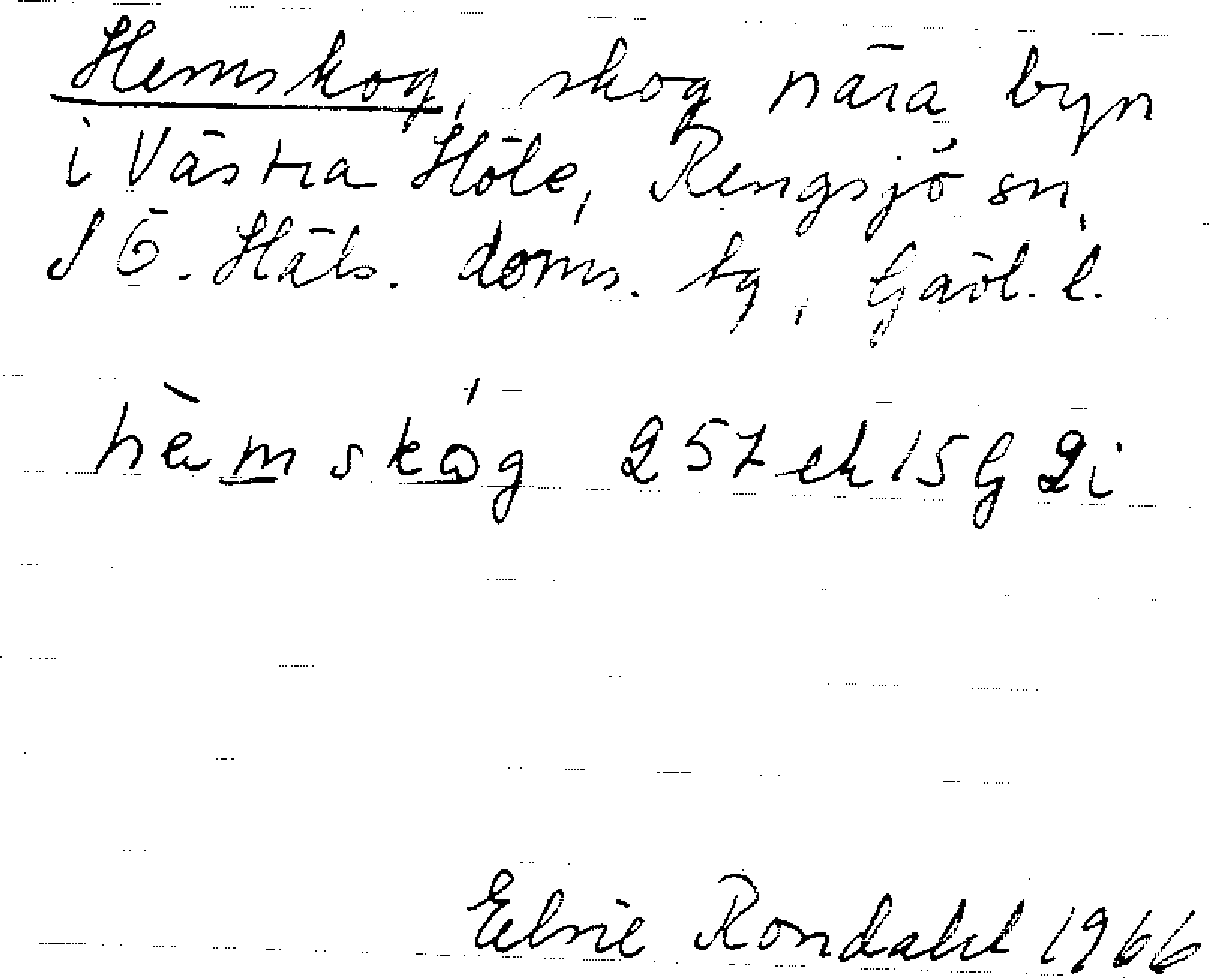 Hemskog, skog nära byn
i Västra Höle, Rengsjö sn,
SÖ. Häls. doms. tg, Gävl. l.
hèmskóg 257 ek 15G 2i
Rondahl 1966